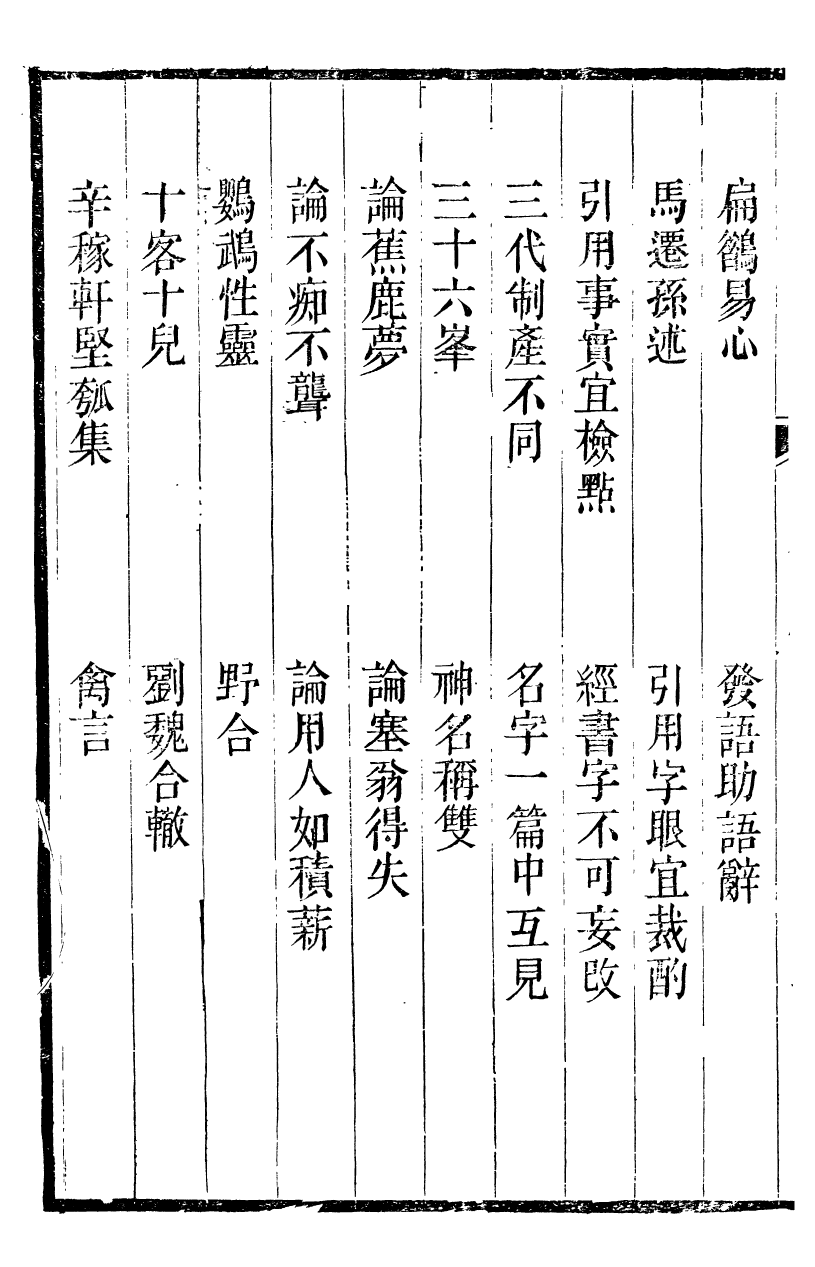 扁鵒易心　發語助語辭
馬遷孫述　引用字眼宜裁酌
引用事實宜檢點　經書字不可妄改
三代制產不同　名字一篇中互見
三十六峯　神名稱雙
論蕉鹿夢　論塞翁得失
論不痴不聾　論用人如積薪
鸚鵡性靈　野合
十客十兒　劉魏合轍
辛稼軒堅瓠集　禽言